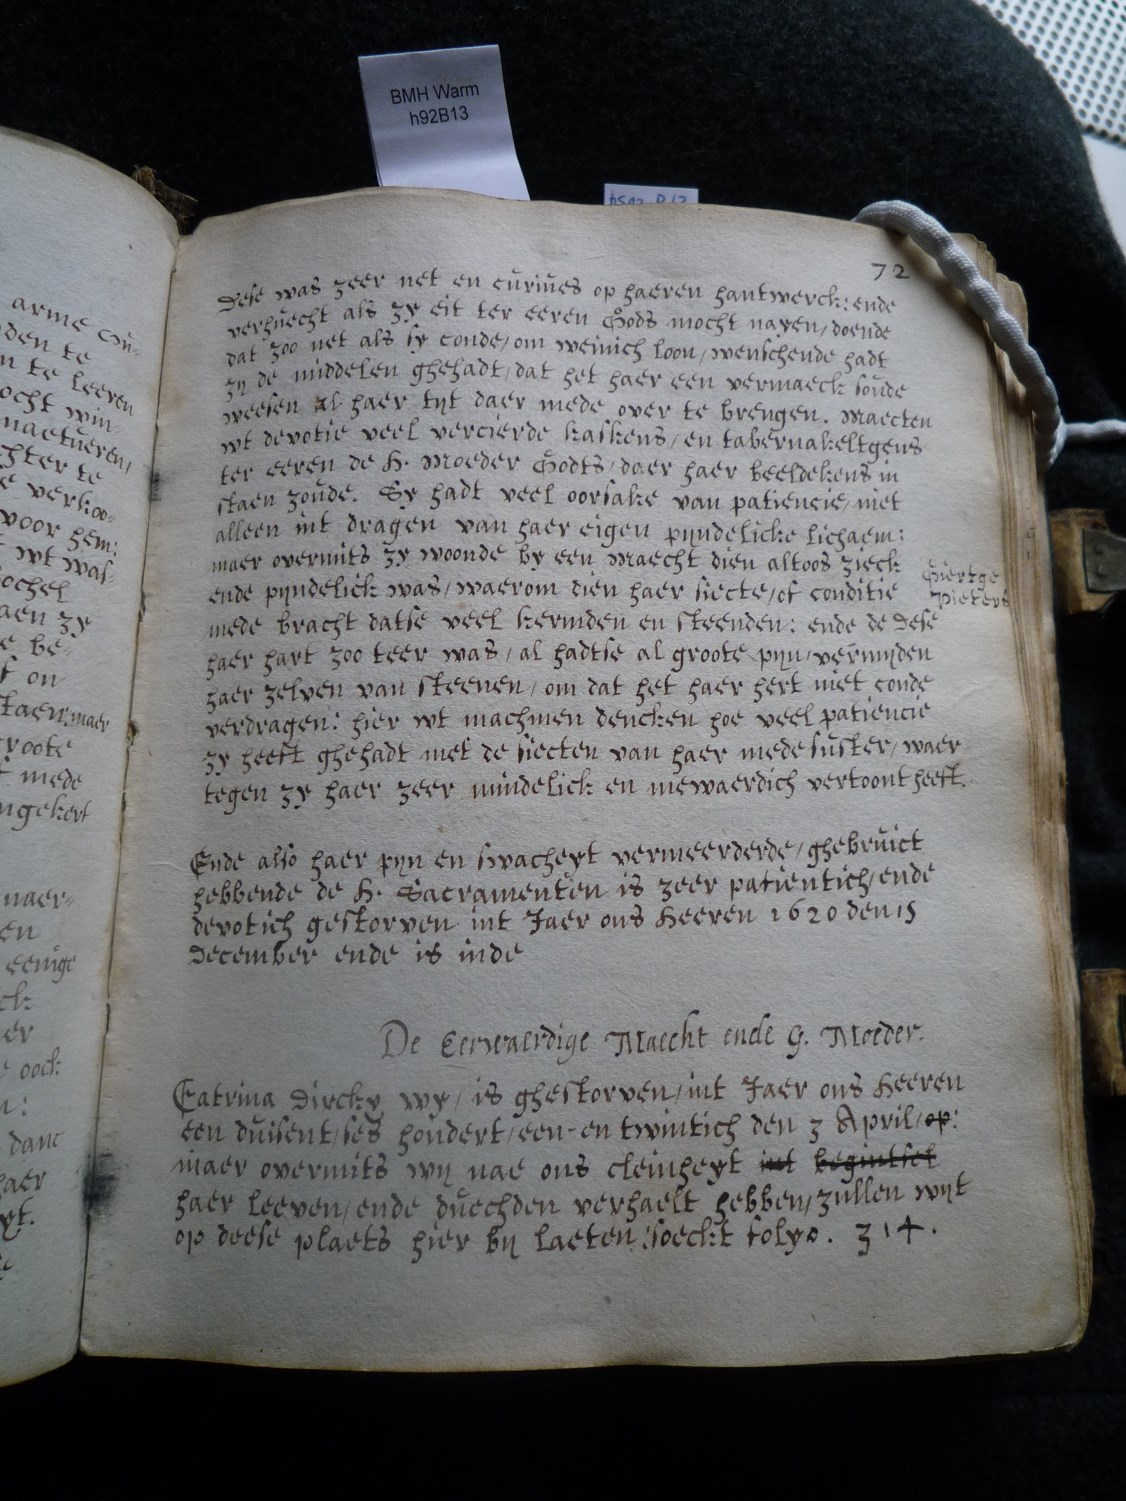 BMH Warm
h92B13
72
Dese was zeer net en curiues op haeren hantwerck: ende
verhuecht als zy eit ter eeren Gods mocht nayen/doende
dat zoo net als sy conde/om weinich loon/wenschende hadt
zy de middelen ghehadt/dat het haer een vermaeck soude
weesen al haer tyt daer mede over te brengen. maecten
wt devotie veel vercierde kaskens/en tabernakeltgens
ter eeren de H. Moeder Godts/daer haer beeldekens in
staen zoude. Sy hadt veel oorsake van patiencie/niet
alleen int dragen van haer eigen pyndelicke lichaem:
maer overmits zy woonde by een Maecht dien altoos zieck
ende pyndelick was/waerom dien haer siecte/of conditie
Giertge
Pieters
mede bracht datse veel kermden en steenden: ende de dese
haer hart zoo teer was/al hadtse al groote pyn/vermyden
haer zelven van steenen/om dat het haer hert niet conde
verdragen: hier wt machmen dencken hoe veel patiencie
zy heeft ghehadt met de siecten van haer mede suster/waer
tegen zy haer zeer mindelick en niewaerdich vertoont heeft.
Ende also haer pyn en swacheyt vermeerderde/ghebruict
hebbende de H. Sacramenten is zeer patientich/ende
devotich gestorven int Jaer ons Heeren 1620 den 15
December ende is inde
De Eerwaerdige Maecht ende G. Moeder.
Catrina Dircks wy/is ghestorven/int Jaer ons Heeren
een duisent/ses hondert/een-en twintich den 3 April/op:
maer overmits wy nae ons cleinheyt int begintsel
haer leeven/ende duechden verhaelt hebben/zullen wyt
op deese plaets hier by laeten: soeckt folyo. 314.
arme
den te
n te leeren
ocht win-
naetueren/
chter te
e verkoo-
voor hem:
wt was-
ochel
aen zy
e be-
on
staen: maer
groote
mede
ngekert
maer-
en
eenige
er
oock
danc
haer